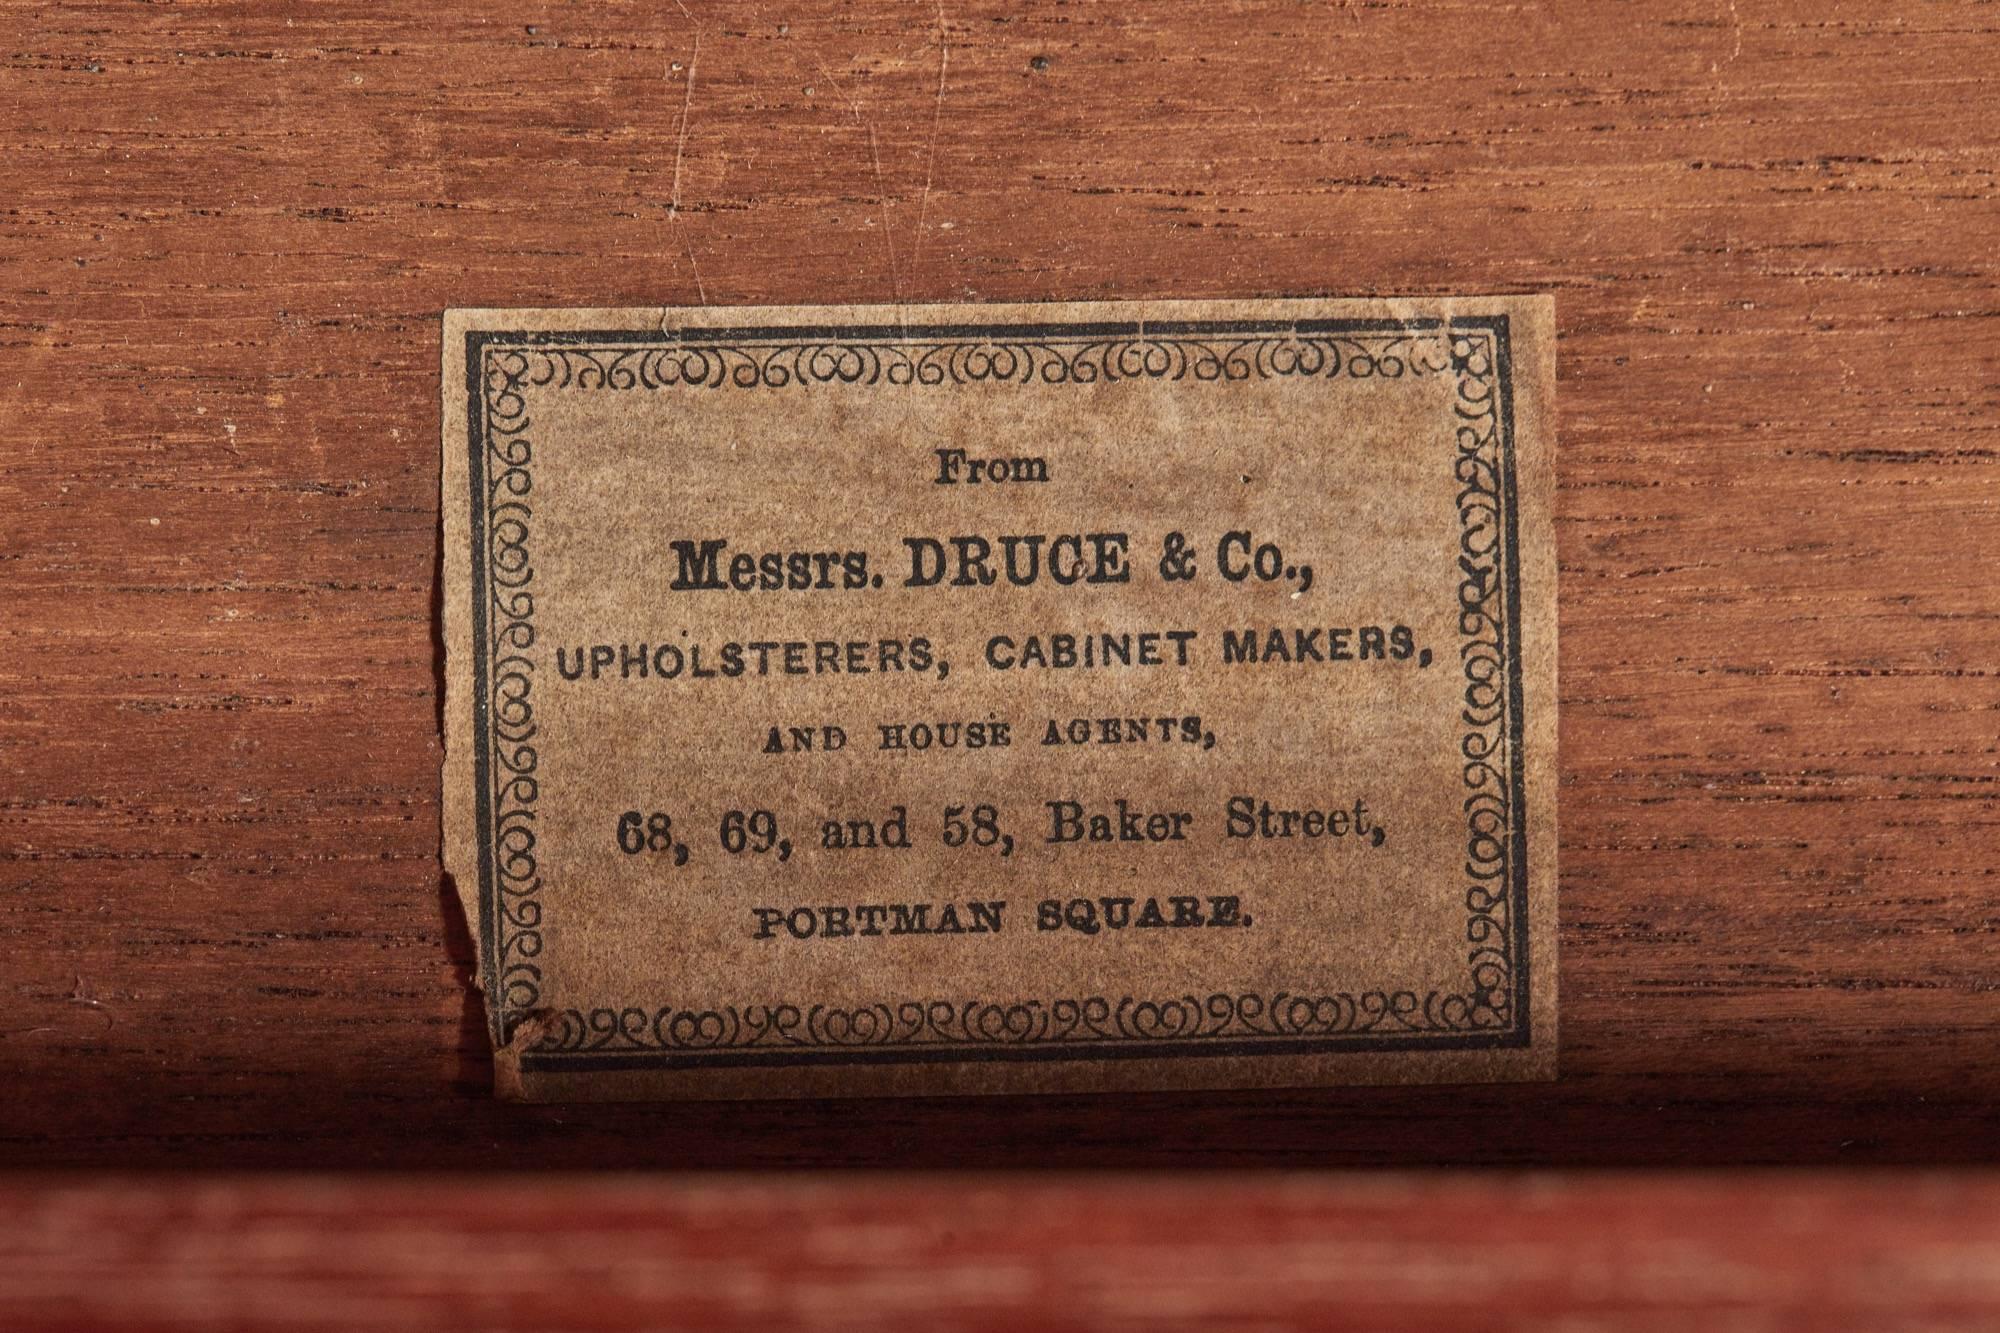 From
Messrs. DRUCE & Co.,
UPHOLSTERERS, CABINET MAKERS,
AND HOUSE AGENTS,
68, 69, and 58, Baker Street,
PORTMAN SQUARE.